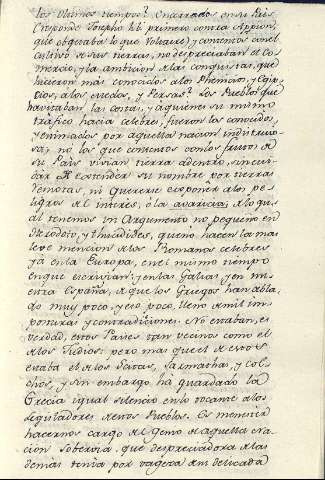 los ultimos tiempos? Encerrados en su Pais
responde Josepho lib. primero contra Appion,
que objetaba lo que Voltaire, y contentos con el
cultivo de sus tierras, no apreciaban el Co-
mercio, y la ambicion de las conquistas, que
hicieron mas conocidos a los Phenicios, y Egip-
cios, a los Medos, y Persas. Los Pueblos que
havitaban las costas, y a quienes su mismo
trafico hacia celebres, fueron los conocidos,
y estimados por aquella nacion industrio-
sa; no los que contentos con los frutos de
su Pais vivian tierra adentro, sin cui-
dar de estender su nombre por tierras
remotas, ni quererse exponer a los pe-
ligros del interés, ò la avaricia; de lo qu.
al tenemos un Argumento no pequeño en
Herodoto, y Thucidides, que no hacen la mas
leve mencion de los Romanos celebres
yà en la Europa, en el mismo tiempo
en que escrivian; y en las Galias, y en nu-
estra España, de que los Griegos han abla-
do muy poco, y eso poco, lleno de mil im-
posturas y contradiciones. No estaban, es
verdad, estos Paises tan vecinos como el
de los Judios: pero mas que el de estos
estaba el de los Dacas, Sarmathas, y Col-
chos, y sin embargo ha guardado la
Grecia igual silencio en lo tocante a los
legisladores de estos Pueblos. Es menester
hacernos cargo del genio de aquella na-
cion sobervia, que despreciadora de las
demas tenia por vageza dela delicada